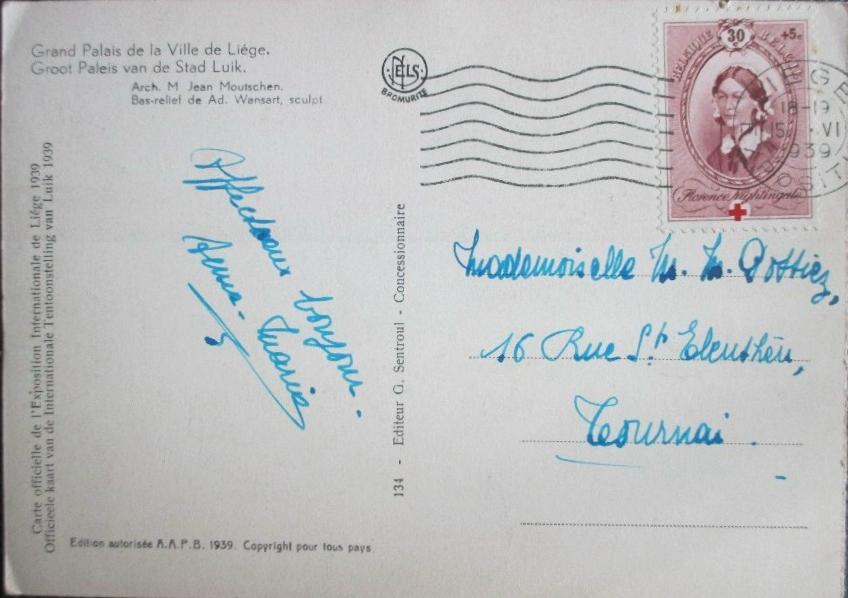 Grand Palais de la Ville de Liége.
Groot Paleis van de Stad Luik.
Arch. M Jean Moutschen.
Bas-relief de Ad. Wansart, sculpt.
NELS
BROMURITE
BELGIQUE 30 BELGIË
+5c
Florence Nightingale
LIEGE
18-19
15 VI
1939
Carte officielle de l'Exposition Internationale de Liége 1939
Officieele kaart van de Internationale Tentoonstelling van Luik 1939
Affectueux bonjour.
Anna-Maria
134 - Editeur G. Sentroul - Concessionnaire
Mademoiselle M. M.
16 Rue St Eleuthère,
Tournai.
Edition autorisée A.A.P.B. 1939. Copyright pour tous pays.